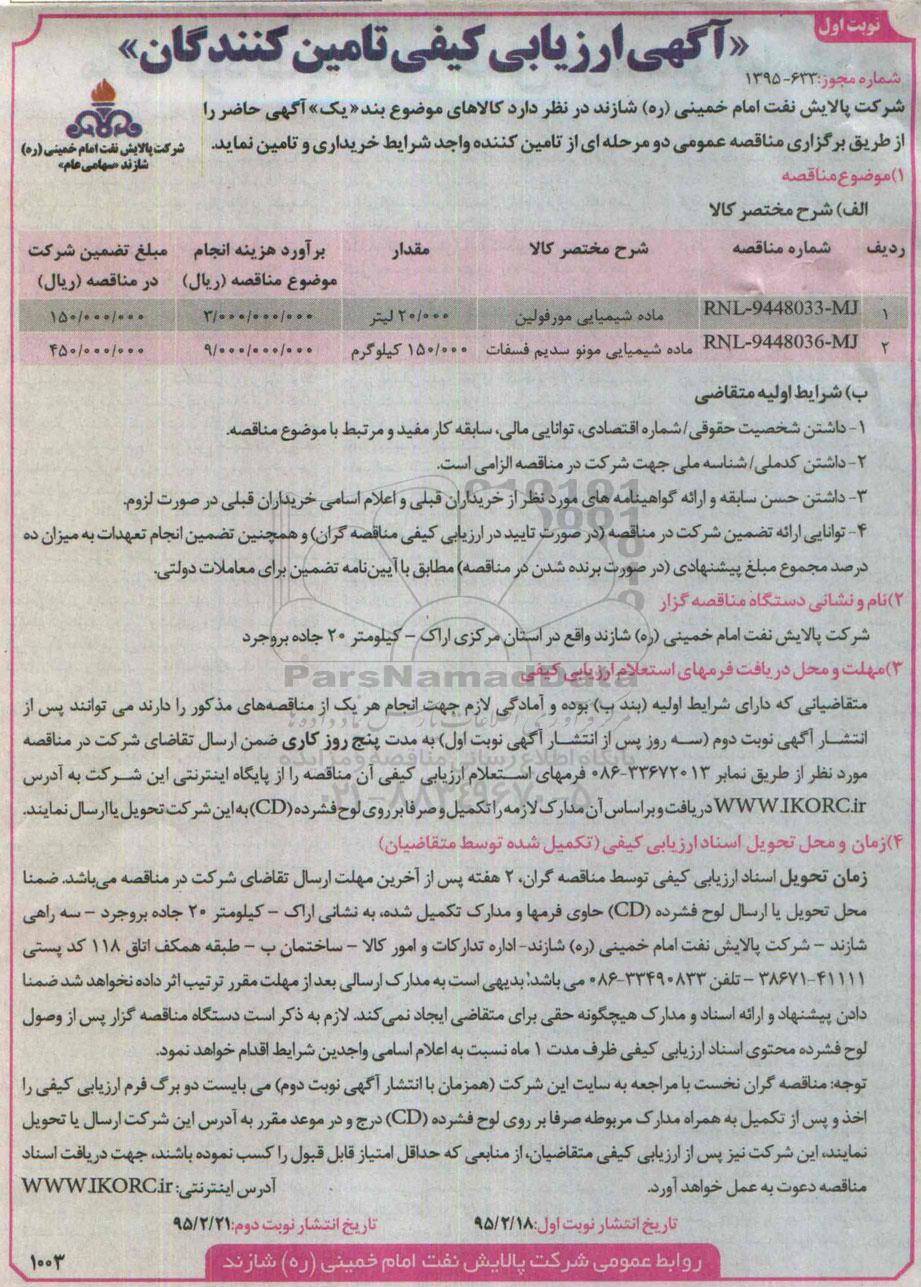 نوبت اول
«آگهی ارزیابی کیفی تامین کنندگان»
شماره مجوز:۶۳۳-۱۳۹۵
شرکت پالایش نفت امام خمینی (ره) شازند در نظر دارد کالاهای موضوع بند «یک» آگهی حاضر را
از طریق برگزاری مناقصه عمومی دو مرحله ای از تامین کننده واجد شرایط خریداری و تامین نماید.
شرکت پالایش نفت امام خمینی (ره)
شازند «سهامی عام»
۱)موضوع مناقصه
الف) شرح مختصر کالا
ردیف شماره مناقصه شرح مختصر کالا مقدار برآورد هزینه انجام موضوع مناقصه (ریال) مبلغ تضمین شرکت در مناقصه (ریال)
۱ RNL-9448033-MJ ماده شیمیایی مورفولین ۲۰/۰۰۰ لیتر ۳/۰۰۰/۰۰۰/۰۰۰ ۱۵۰/۰۰۰/۰۰۰
۲ RNL-9448036-MJ ماده شیمیایی مونو سدیم فسفات ۱۵۰/۰۰۰ کیلوگرم ۹/۰۰۰/۰۰۰/۰۰۰ ۴۵۰/۰۰۰/۰۰۰
ب) شرایط اولیه متقاضی
۱- داشتن شخصیت حقوقی/ شماره اقتصادی، توانایی مالی، سابقه کار مفید و مرتبط با موضوع مناقصه.
۲- داشتن کدملی/ شناسه ملی جهت شرکت در مناقصه الزامی است.
۳- داشتن حسن سابقه و ارائه گواهینامه های مورد نظر از خریداران قبلی و اعلام اسامی خریداران قبلی در صورت لزوم.
۴- توانایی ارائه تضمین شرکت در مناقصه (در صورت تایید در ارزیابی کیفی مناقصه گران) و همچنین تضمین انجام تعهدات به میزان ده
درصد مجموع مبلغ پیشنهادی (در صورت برنده شدن در مناقصه) مطابق با آیین‌نامه تضمین برای معاملات دولتی.
۲)نام و نشانی دستگاه مناقصه گزار
شرکت پالایش نفت امام خمینی (ره) شازند واقع در استان مرکزی اراک – کیلومتر ۲۰ جاده بروجرد
ParsNamadData
۳)مهلت و محل دریافت فرمهای استعلام ارزیابی کیفی
متقاضیانی که دارای شرایط اولیه (بند ب) بوده و آمادگی لازم جهت انجام هر یک از مناقصه‌های مذکور را دارند می توانند پس از
انتشار آگهی نوبت دوم (سه روز پس از انتشار آگهی نوبت اول) به مدت پنج روز کاری ضمن ارسال تقاضای شرکت در مناقصه
پایگاه اطلاع رسانی مناقصه و مزایده
مورد نظر از طریق نمابر ۳۳۶۷۲۰۱۳-۰۸۶ فرمهای استعلام ارزیابی کیفی آن مناقصه را از پایگاه اینترنتی این شرکت به آدرس
WWW.IKORC.ir دریافت و بر اساس آن مدارک لازمه را تکمیل و صرفا بر روی لوح فشرده (CD) به این شرکت تحویل یا ارسال نمایند.
۴)زمان و محل تحویل اسناد ارزیابی کیفی (تکمیل شده توسط متقاضیان)
زمان تحویل اسناد ارزیابی کیفی توسط مناقصه گران، ۲ هفته پس از آخرین مهلت ارسال تقاضای شرکت در مناقصه می‌باشد. ضمنا
محل تحویل یا ارسال لوح فشرده (CD) حاوی فرمها و مدارک تکمیل شده، به نشانی اراک – کیلومتر ۲۰ جاده بروجرد – سه راهی
شازند – شرکت پالایش نفت امام خمینی (ره) شازند- اداره تدارکات و امور کالا – ساختمان ب – طبقه همکف اتاق ۱۱۸ کد پستی
۴۱۱۱۱-۳۸۶۷۱ – تلفن ۳۳۴۹۰۸۳۳-۰۸۶ می باشد. بدیهی است به مدارک ارسالی بعد از مهلت مقرر ترتیب اثر داده نخواهد شد ضمنا
دادن پیشنهاد و ارائه اسناد و مدارک هیچگونه حقی برای متقاضی ایجاد نمی‌کند. لازم به ذکر است دستگاه مناقصه گزار پس از وصول
لوح فشرده محتوی اسناد ارزیابی کیفی ظرف مدت ۱ ماه نسبت به اعلام اسامی واجدین شرایط اقدام خواهد نمود.
توجه: مناقصه گران نخست با مراجعه به سایت این شرکت (همزمان با انتشار آگهی نوبت دوم) می بایست دو برگ فرم ارزیابی کیفی را
اخذ و پس از تکمیل به همراه مدارک مربوطه صرفا بر روی لوح فشرده (CD) درج و در موعد مقرر به آدرس این شرکت ارسال یا تحویل
نمایند، این شرکت نیز پس از ارزیابی کیفی متقاضیان، از منابعی که حداقل امتیاز قابل قبول را کسب نموده باشند، جهت دریافت اسناد
مناقصه دعوت به عمل خواهد آورد. آدرس اینترنتی: WWW.IKORC.ir
تاریخ انتشار نوبت اول: ۹۵/۲/۱۸ تاریخ انتشار نوبت دوم: ۹۵/۲/۲۱
روابط عمومی شرکت پالایش نفت امام خمینی (ره) شازند
۱۰۰۳